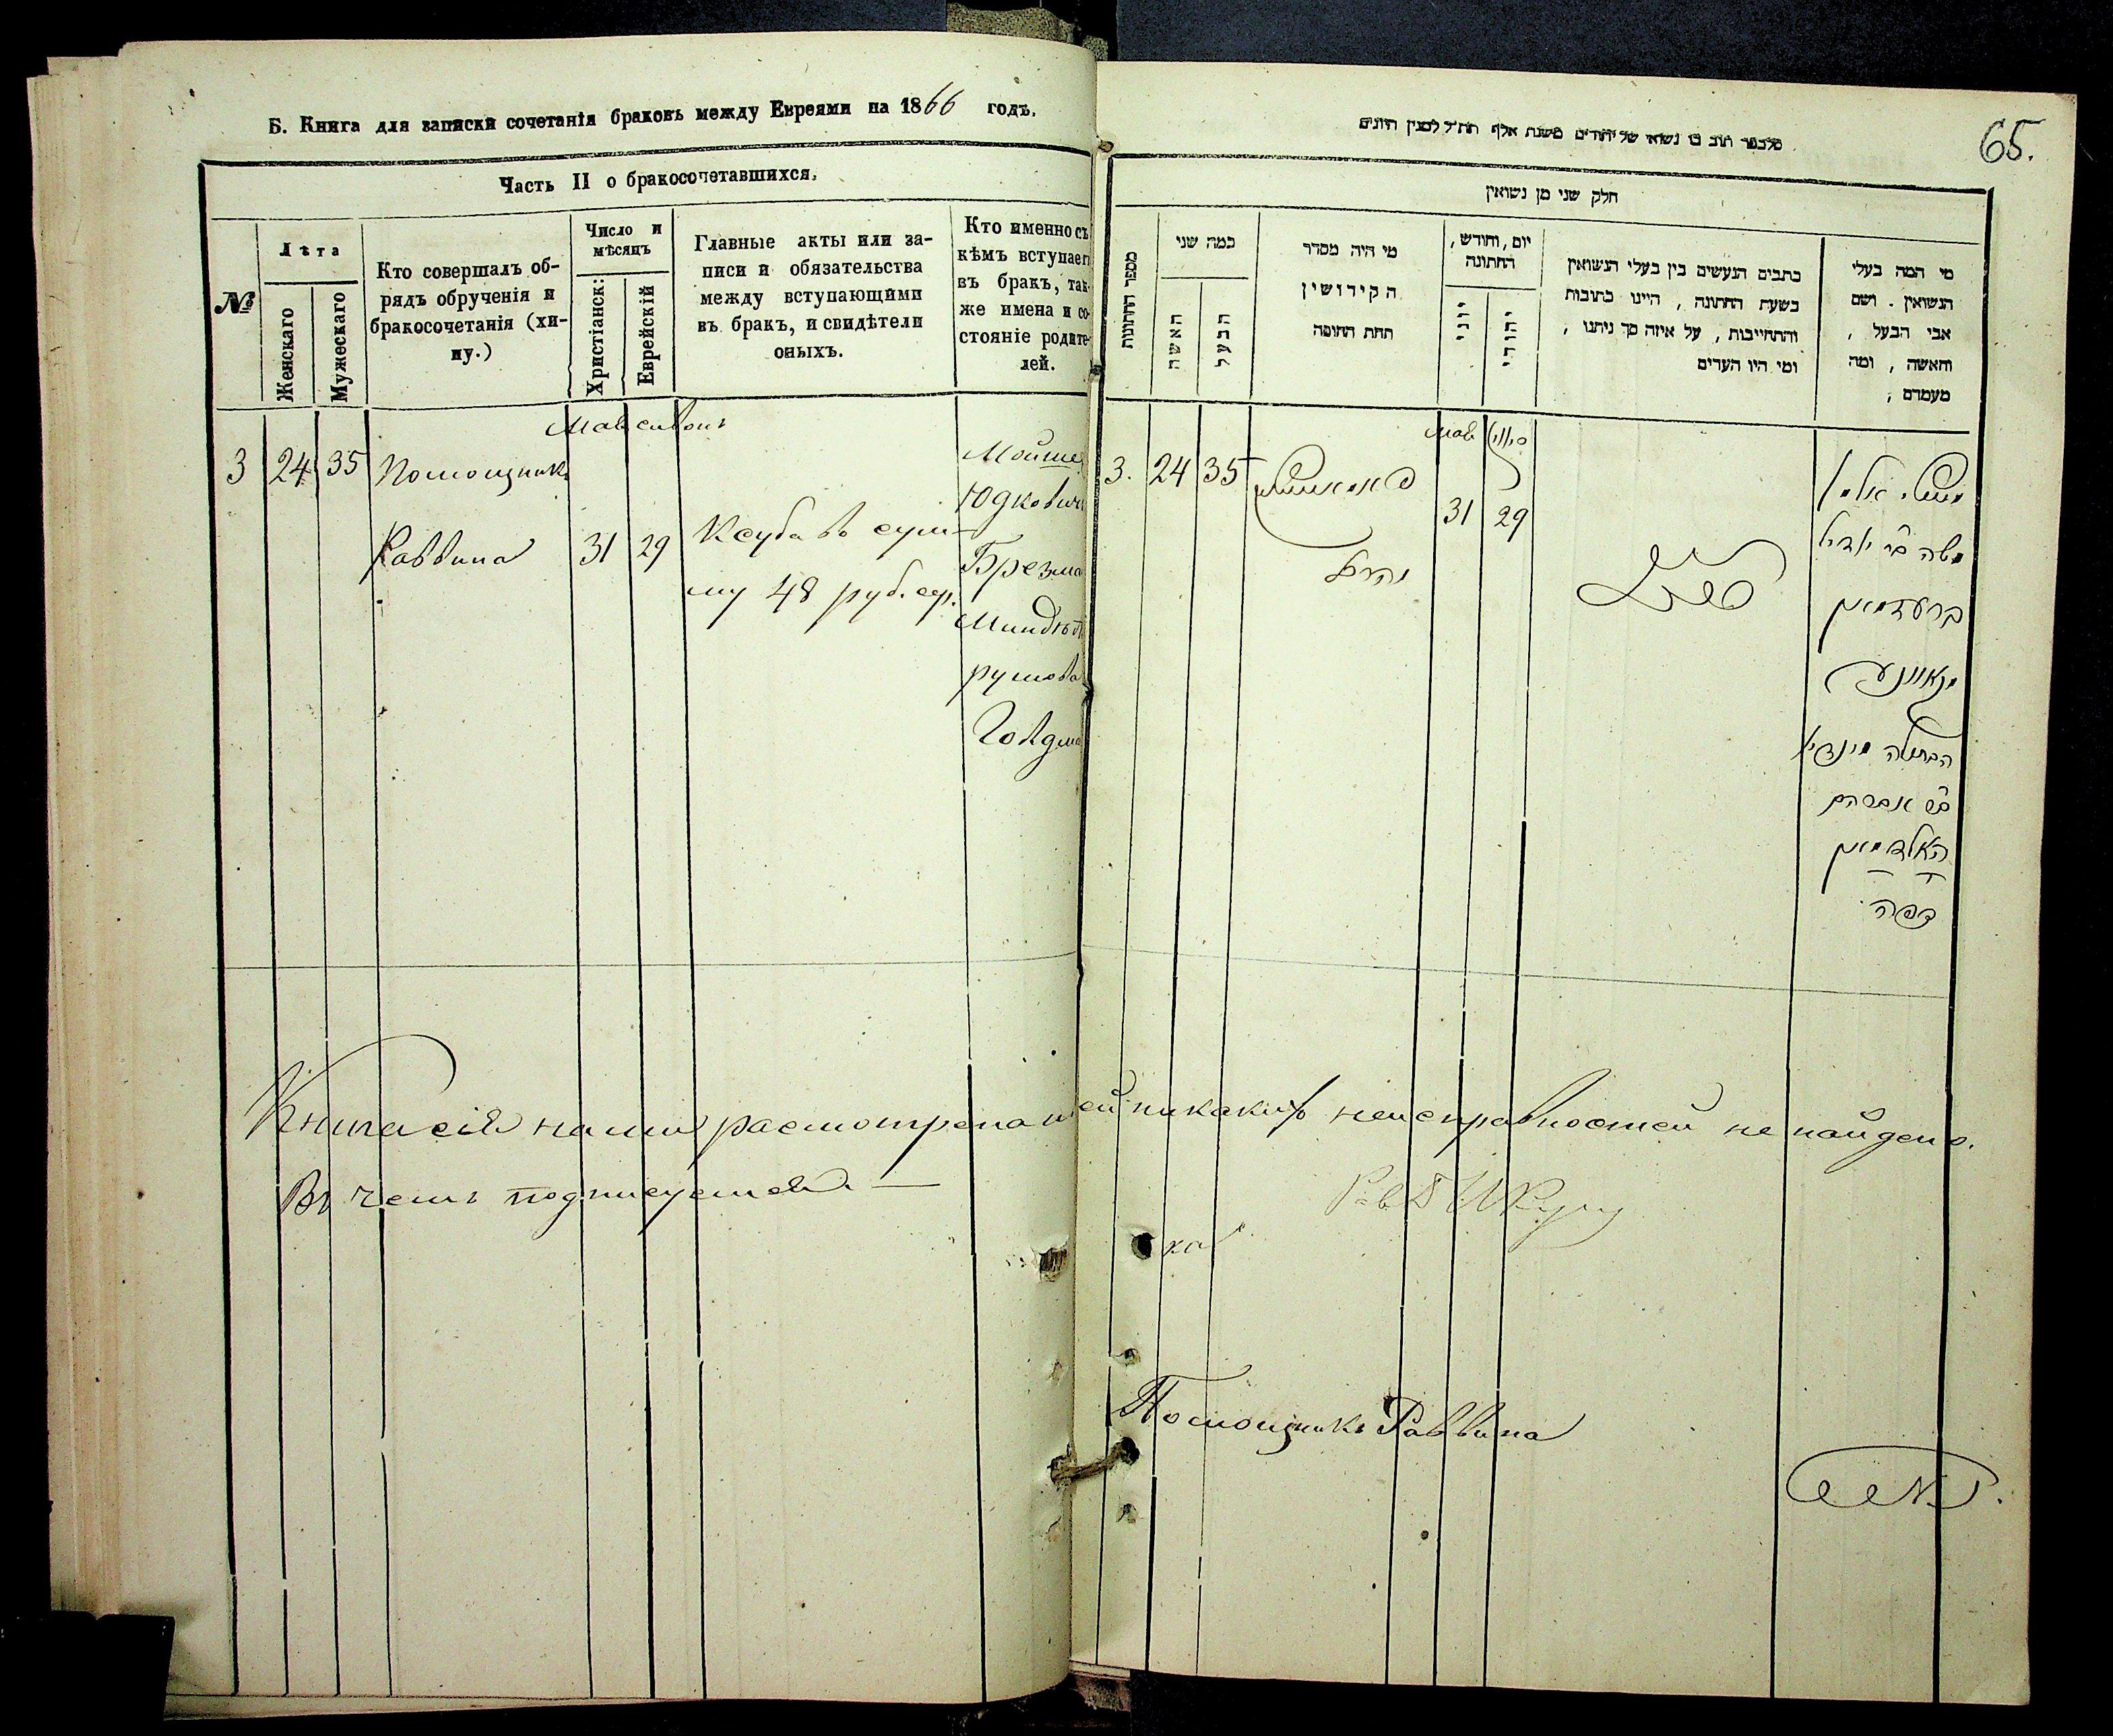 Б. Книга для записки сочетанія браковъ между Евреями на 1866 годъ.
Часть II о бракосочетавшихся.
№
Лѣта
Женскаго
Мужескаго
Кто совершалъ об-
рядъ обрученія и
бракосочетанія (хи-
пу.)
Число и
мѣсяцъ
Христіанск:
Еврейскій
Главные акты или за-
писи и обязательства
между вступающими
въ бракъ, и свидѣтели
оныхъ.
Кто именно съ
кѣмъ вступает
въ бракъ, так-
же имена и со-
стояніе родите-
лей.
3 24 35
Помощникъ
Раввина
Мая
31 29
Ксуба во сум-
му 48 руб. сер.
Мойше
Юдковичъ
Брезма
Гольдма
Книга сія нами расмотрена и въ ней никакихъ неисправностей не найдено.
Въ чемъ подписуемся. —
65.
חלק שני מן נשואין
מספר החתונות
כמה שני
האשה
הבעל
מי היה מסדר
הקידושין
תחת החופה
יום, וחודש,
החתונה
יוני
יהודי
כתבים הנעשים בין בעלי הנשואין
בשעת החתונה, היינו כתובות
והתחייבות, על איזה סך ניתנו,
ומי היו העדים
מי המה בעלי
הנשואין. ושם
אבי הבעל,
והאשה, ומה
מעמדם;
3. 24 35
Мая סיון
31 29
משה ב״ר יודיל
ברעזמאן
הבתולה מינדיל
ב״ר אברהם
האלדמאן
מפה
Помощникъ Раввина